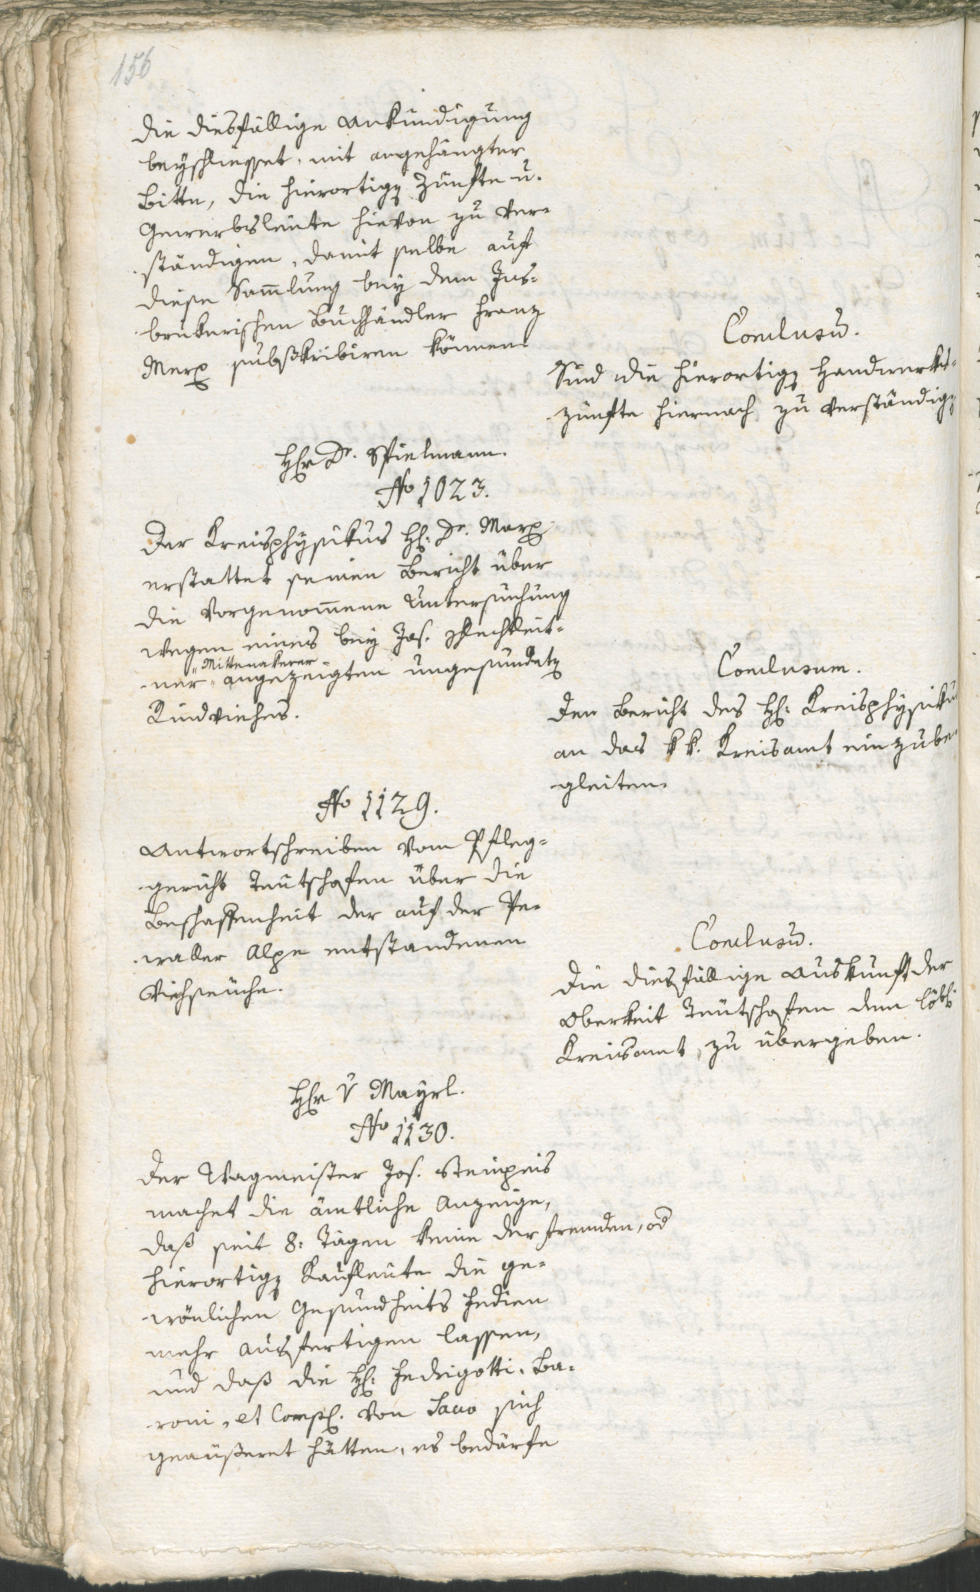 156
die diesfällige Ankündigung
beyschliesset, mit angehängter
Bitte, die hierortige Zünfte u.
Gewerbsleute hievon zu ver-
ständigen, damit selbe auf
diese Samlung bey dem Ins-
brukerischen Buchhändler Franz
subskribiren können.
Conclusū.
Sind die hierortige Handwerks-
zünfte hiernach zu verständigen
Hr Dr. Spielmann.
No 1023.
Der Kreisphysikus H: Dr. Marx
erstattet seinen Bericht über
die vorgenommene Untersuchung
wegen eines bey Jos. Plechleit-
Mittenakerer
ner angezeigten ungesunden
Rindviehes.
Conclusum.
Den Bericht des H: Kreisphysikus
an das kk. Kreisamt einzube-
gleiten.
No 1129.
Antwortschreiben vom Pfleg-
gericht Teutschofen über die
Beschaffenheit der auf der
Alpe entstandenen
Viehseuche.
Conclusū.
Die diesfällige Auskunft der
Oberkeit Teutschofen dem löbl:
Kreisamt zu übergeben.
Hr v Mayrl.
No 1130.
Der Wagmeister Jos. Steinpeis
machet die ämtliche Anzeige,
daß seit 8: Tägen keine der fremden, od
hierortige Kaufleute die ge-
wönlichen Gesundheits Fedien
mehr ausfertigen lassen,
und daß die H: Fedrigotti, Ba-
roni, et Comp: von Sacco sich
geäußeret hätten, es bedärfe